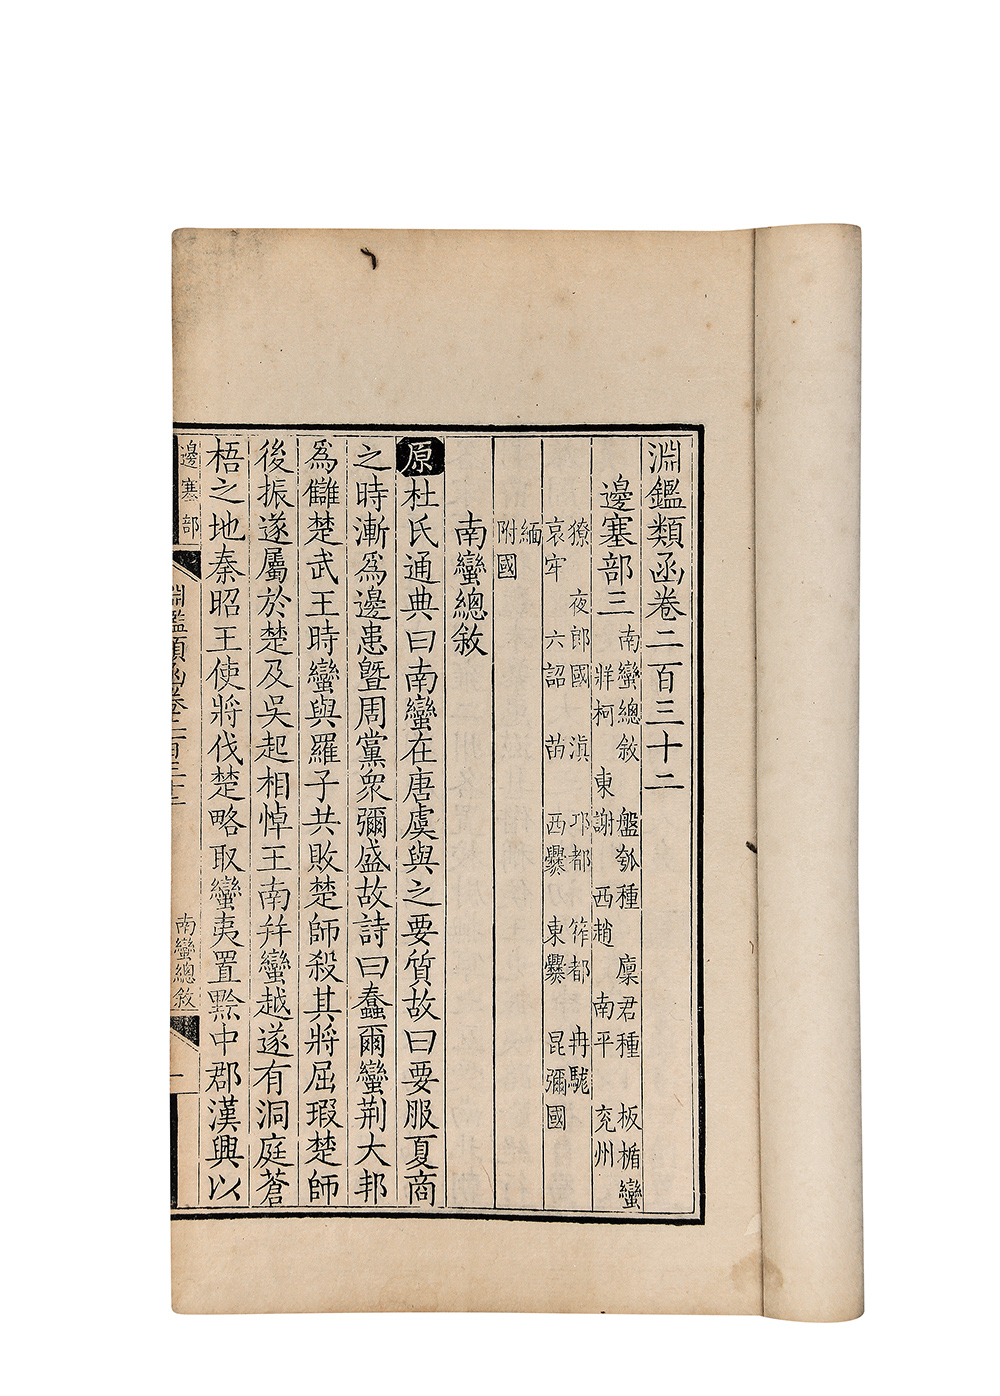 淵鑑類函卷二百三十二
邊塞部三
南蠻總敘 盤瓠種 廩君種 板楯蠻
牂柯 東謝 西趙 南平 兖州
獠 夜郎國 滇 邛都 筰都 冉駹
哀牢 六詔 苗 西爨 東爨 昆彌國
緬
附國
南蠻總敘
原杜氏通典曰南蠻在唐虞與之要質故曰要服夏商
之時漸爲邊患曁周黨衆彌盛故詩曰蠢爾蠻荆大邦
爲讎楚武王時蠻與羅子共敗楚師殺其將屈瑕楚師
後振遂屬於楚及吳起相悼王南幷蠻越遂有洞庭蒼
梧之地秦昭王使將伐楚略取蠻夷置黔中郡漢興以
邊塞部
淵鑑類函卷二百三十二
南蠻總敘
一